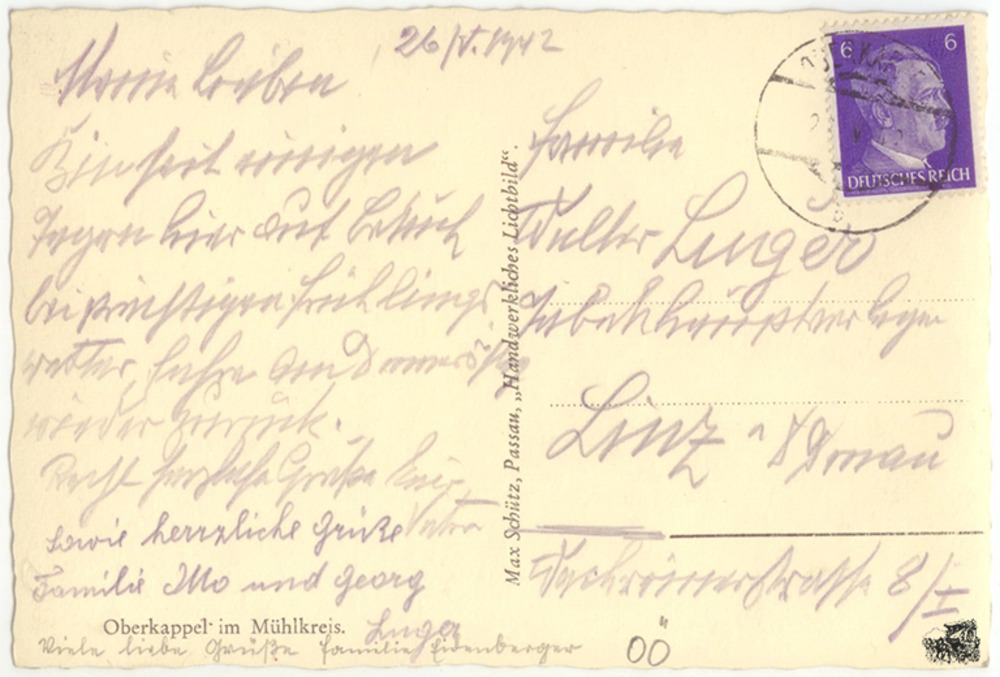 26/V. 1942
Meine Lieben
Bin seit einigen
Tagen hier auf Besuch
bei prächtigem Frühlings
wetter, fahre am Donnerstag
wieder zurück.
Recht herzliche Grüße
Vater
sowie herrzliche Grüße
Familie und Georg
Oberkappel im Mühlkreis.
Viele liebe Grüße Familie Eidenberger
Max Schütz, Passau, „Handwerkliches Lichtbild“.
6 6
DEUTSCHES REICH
Familie
Walter
Tabakhauptverleger
Linz a/Donau
8/I
OÖ